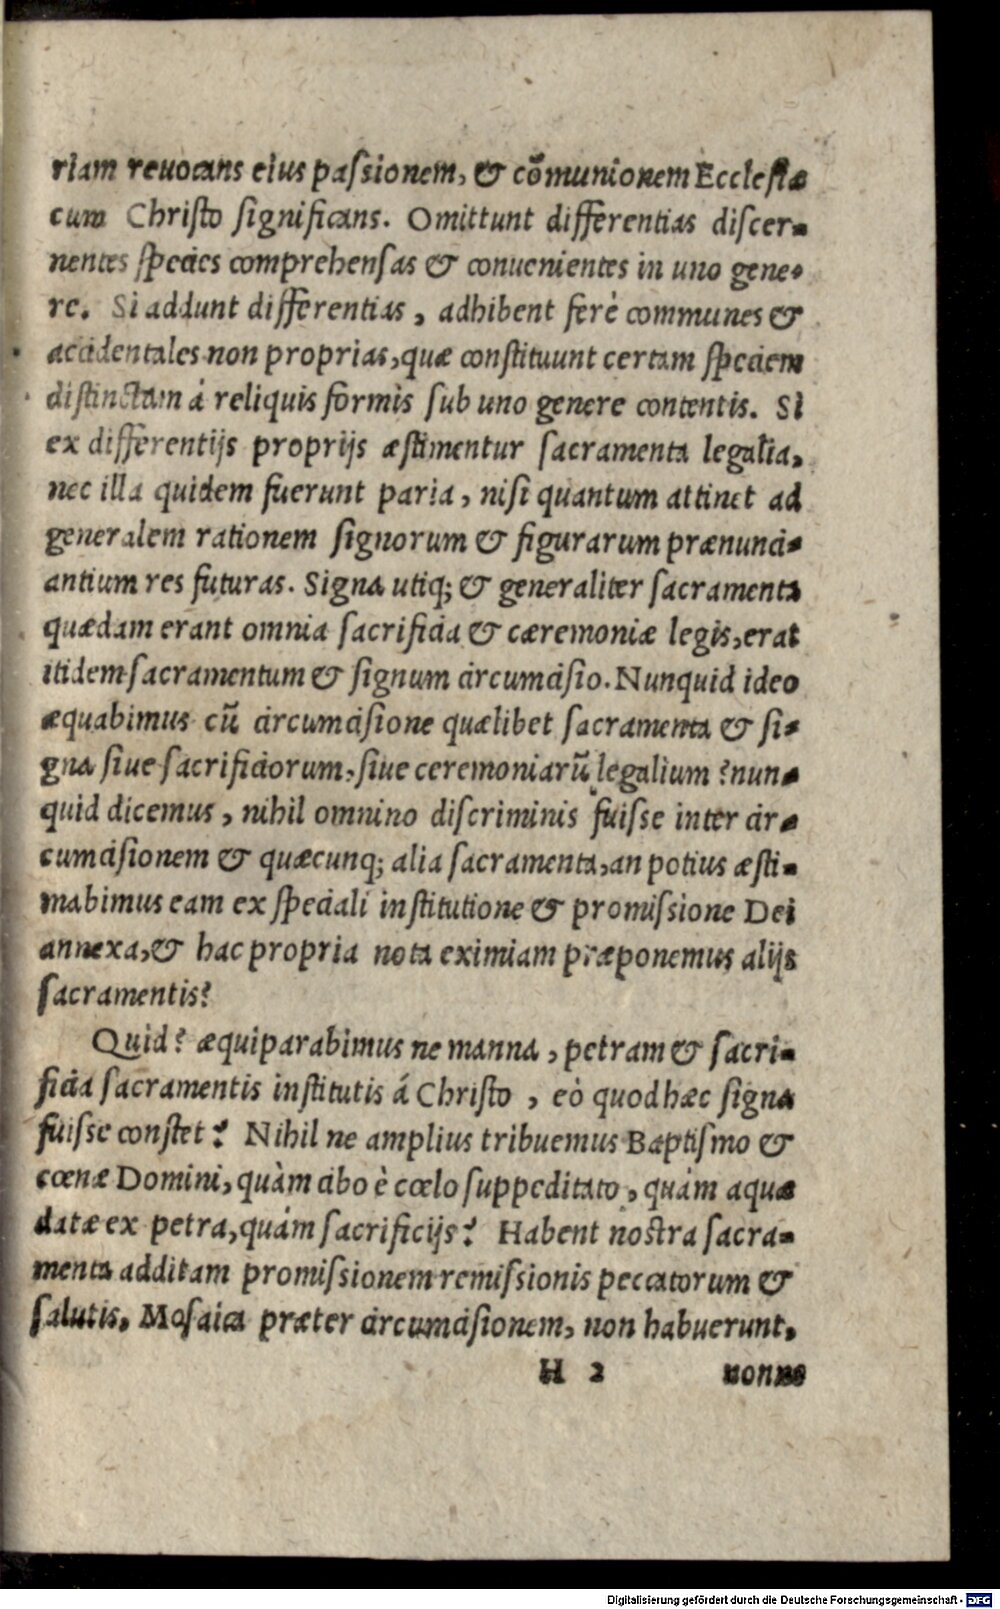 riam reuocans eius passionem, & cõmunionem Ecclesiæ
cum Christo significans. Omittunt differentias discer-
nentes species comprehensas & conuenientes in uno gene-
re. Si addunt differentias, adhibent ferè communes &
accidentales non proprias, quæ constituunt certam speciem
distinctam á reliquis formìs sub uno genere contentis. Si
ex differentijs proprijs æstimentur sacramenta legalia,
nec illa quidem fuerunt paria, nisi quantum attinet ad
generalem rationem signorum & figurarum prænunci-
antium res futuras. Signa utiq; & generaliter sacramenta
quædam erant omnia sacrificia & cæremoniæ legis, erat
itidem sacramentum & signum circumcisio. Nunquid ideo
æquabimus cũ circumcisione quælibet sacramenta & si-
gna siue sacrificiorum, siue ceremoniarũ legalium? nun-
quid dicemus, nihil omnino discriminis fuisse inter cir-
cumcisionem & quæcunq; alia sacramenta, an potius æsti-
mabimus eam ex speciali institutione & promissione Dei
annexa, & hac propria nota eximiam præponemus alijs
sacramentis?
Quid? æquiparabimus ne manna, petram & sacri-
ficia sacramentis institutis á Christo, eò quod hæc signa
fuisse constet? Nihil ne amplius tribuemus Baptismo &
cœnæ Domini, quàm cibo è cœlo suppeditato, quám aquæ
datæ ex petra, quám sacrificijs? Habent nostra sacra-
menta additam promissionem remissionis peccatorum &
salutis. Mosaica præter circumcisionem, non habuerunt.
H 2 nonne
Digitalisierung gefördert durch die Deutsche Forschungsgemeinschaft - DFG